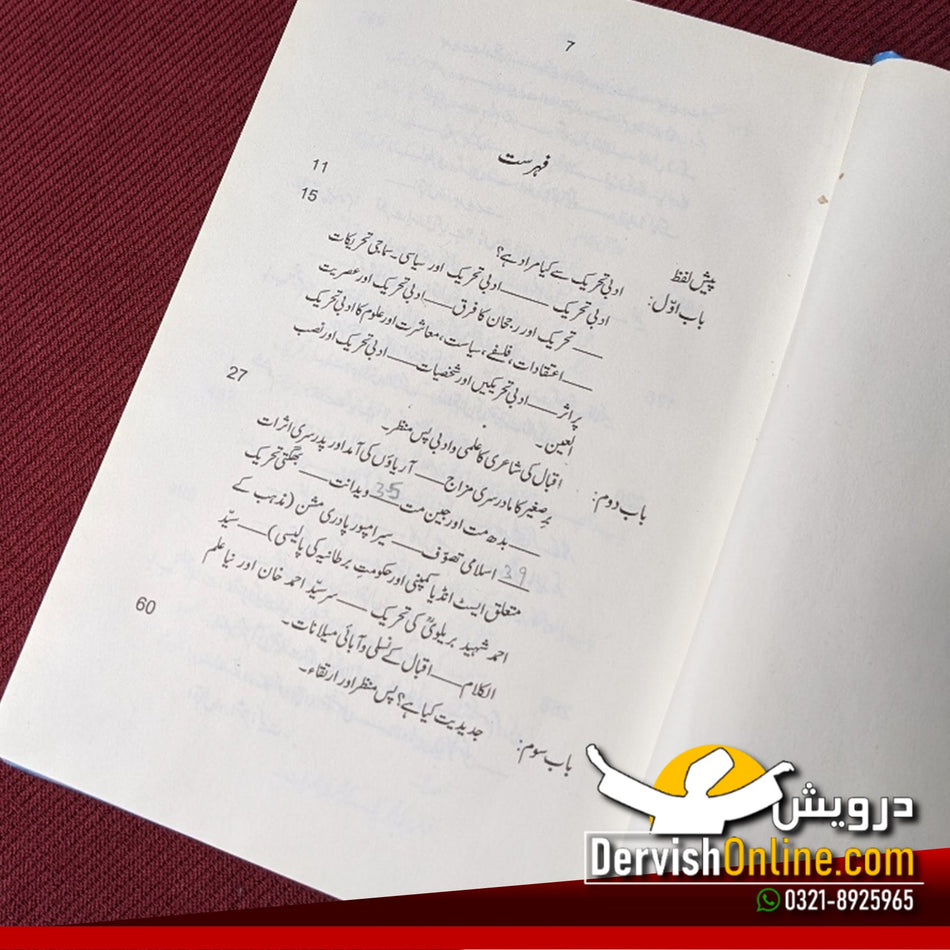 7
فہرست
پیش لفظ 11
باب اوّل: ادبی تحریک سے کیا مراد ہے؟ 15
ادبی تحریک ــــــ ادبی تحریک اور سیاسی۔سماجی تحریکات
ــــــ تحریک اور رجحان کا فرق ــــــ ادبی تحریک اور عصریت
ــــــ اعتقادات، فلسفے، سیاست، معاشرت اور علوم کا ادبی تحریک
پر اثر ــــــ ادبی تحریکیں اور شخصیات ــــــ ادبی تحریک اور نصب
العین۔
باب دوم: اقبال کی شاعری کا علمی و ادبی پس منظر۔ 27
برِصغیر کا مادرسری مزاج ــــــ آریاؤں کی آمد اور پدرسری اثرات
ــــــ بدھ مت اور جین مت 35 ویدانت ــــــ بھگتی تحریک
39 اسلامی تصوّف ــــــ سیرامپور پادری مشن (مذہب کے
متعلق ایسٹ انڈیا کمپنی اور حکومتِ برطانیہ کی پالیسی) ــــــ سیّد
احمد شہید بریلویؒ کی تحریک ــــــ سرسیّد احمد خان اور نیا علم
الکلام ــــــ اقبال کے نسلی و آبائی میلانات۔
باب سوم: جدیدیت کیا ہے؟ پس منظر اور ارتقاء۔ 60
درویش
DervishOnline.com
0321-8925965